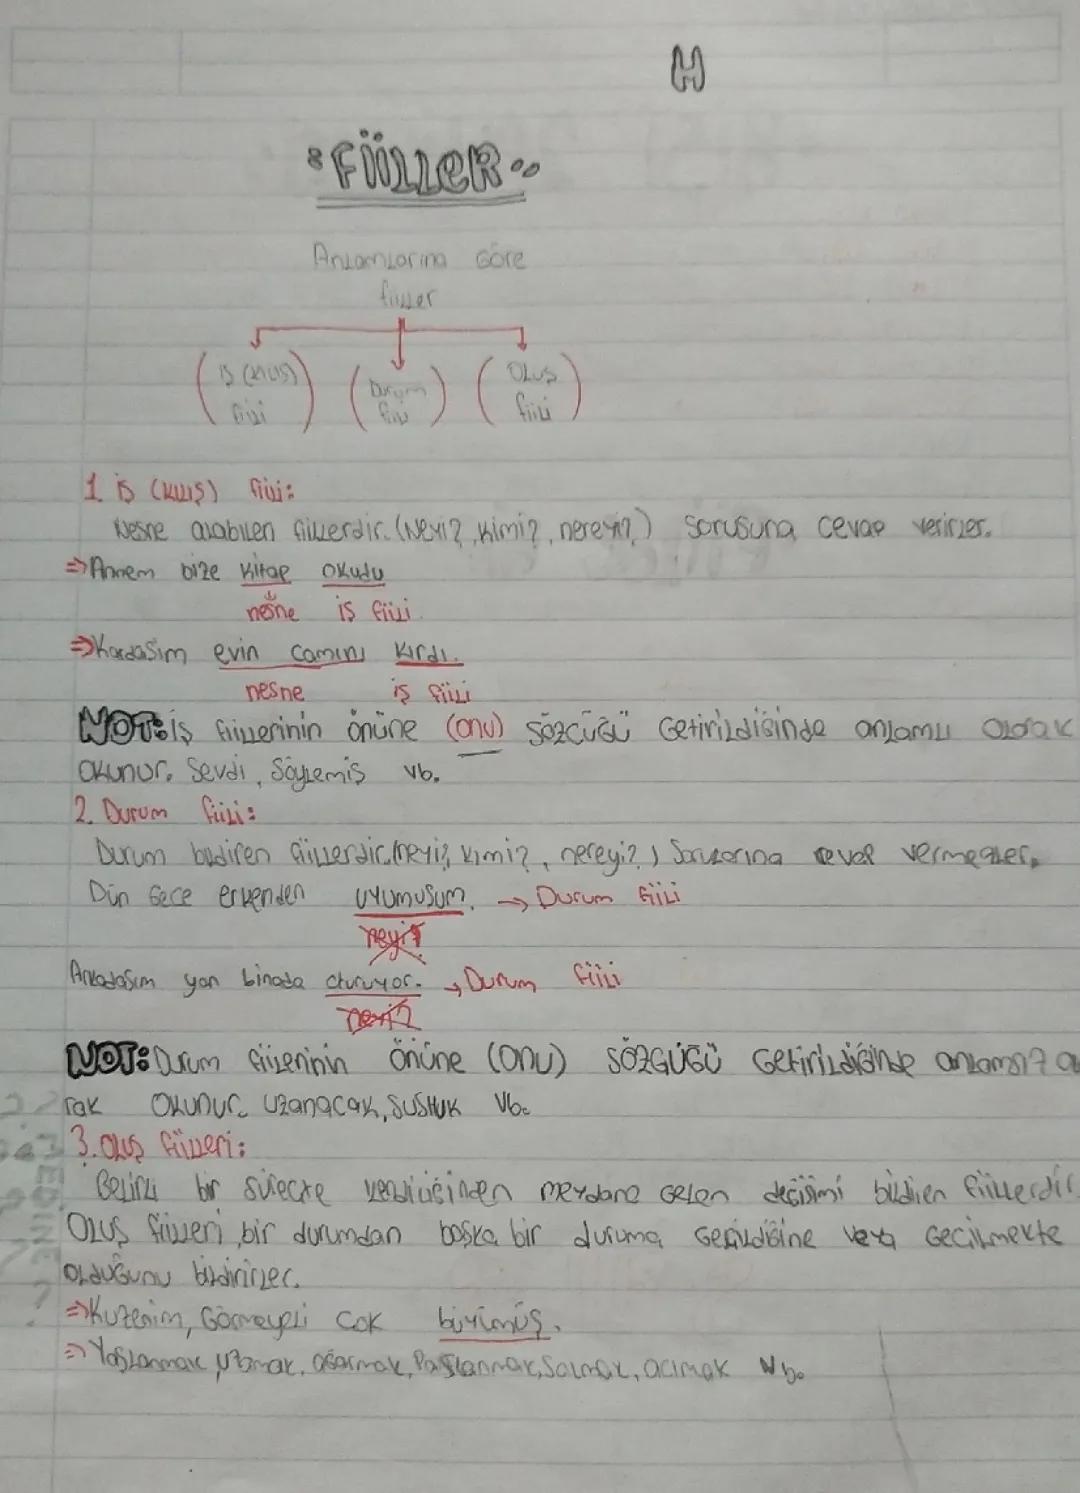 H
FİİLLER
Anlamlarına Göre
fiiller
İş (kılış) Durum Oluş
fiili fiili fiili
1. İş (kılış) fiili:
Nesne alabilen fiillerdir. (Neyi?, kimi?, nereyi?) sorusuna cevap verirler.
⇒ Annem bize kitap okudu
nesne iş fiili
⇒ Kardaşım evin camını kırdı.
nesne iş fiili
NOT: İş fiillerinin önüne (onu) sözcüğü Getirildiğinde anlamlı olarak
okunur. Sevdi, Söylemiş vb.
2. Durum fiili:
Durum bildiren fiillerdir. (neyi?, kimi?, nereyi?) Sorularına cevap vermezler.
Dün Gece erkenden uyumuşum. → Durum fiili
neyi?
Arkadaşım yan binada oturuyor. → Durum fiili
neyi?
NOT: Durum fiillerinin önüne (onu) SÖZGÜĞÜ Getirildiğinde anlamsız ola
rak okunur. Uzanacak, Sustuk vb.
3. Oluş fiilleri:
Belirli bir süreçte kendiliğinden meydana gelen değişimi bildien fiillerdir.
Oluş fiilleri, bir durumdan başka bir duruma Geçildiğine veya Geçilmekte
olduğunu bildirirler.
⇒ Kuzenim, Görmeyeli çok büyümüş.
⇒ Yaşlanmak, uzamak, ağarmak, Paslanmak, Solmak, acımak vb.